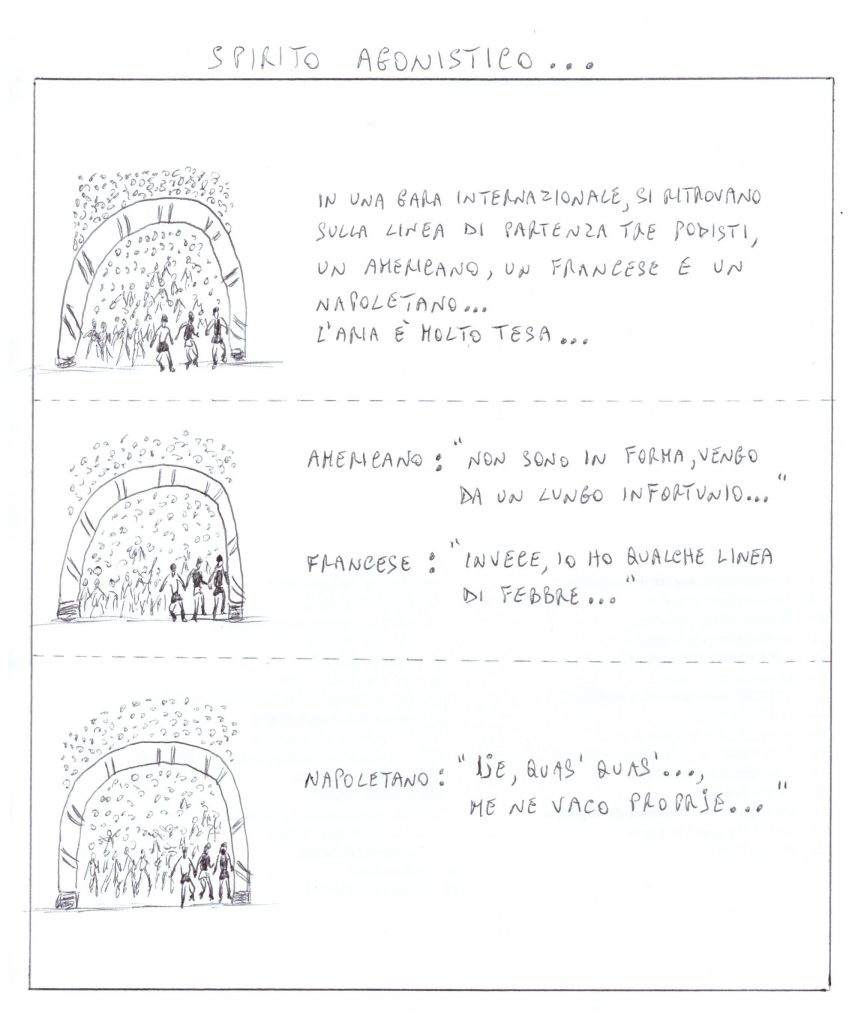 SPIRITO AGONISTICO...
IN UNA GARA INTERNAZIONALE, SI RITROVANO
SULLA LINEA DI PARTENZA TRE PODISTI,
UN AMERICANO, UN FRANCESE E UN
NAPOLETANO...
L'ARIA È MOLTO TESA...
AMERICANO: "NON SONO IN FORMA, VENGO
DA UN LUNGO INFORTUNIO..."
FRANCESE: "INVECE, IO HO QUALCHE LINEA
DI FEBBRE..."
NAPOLETANO: "IJE, QUAS' QUAS'...,
ME NE VACO PROPRJE..."